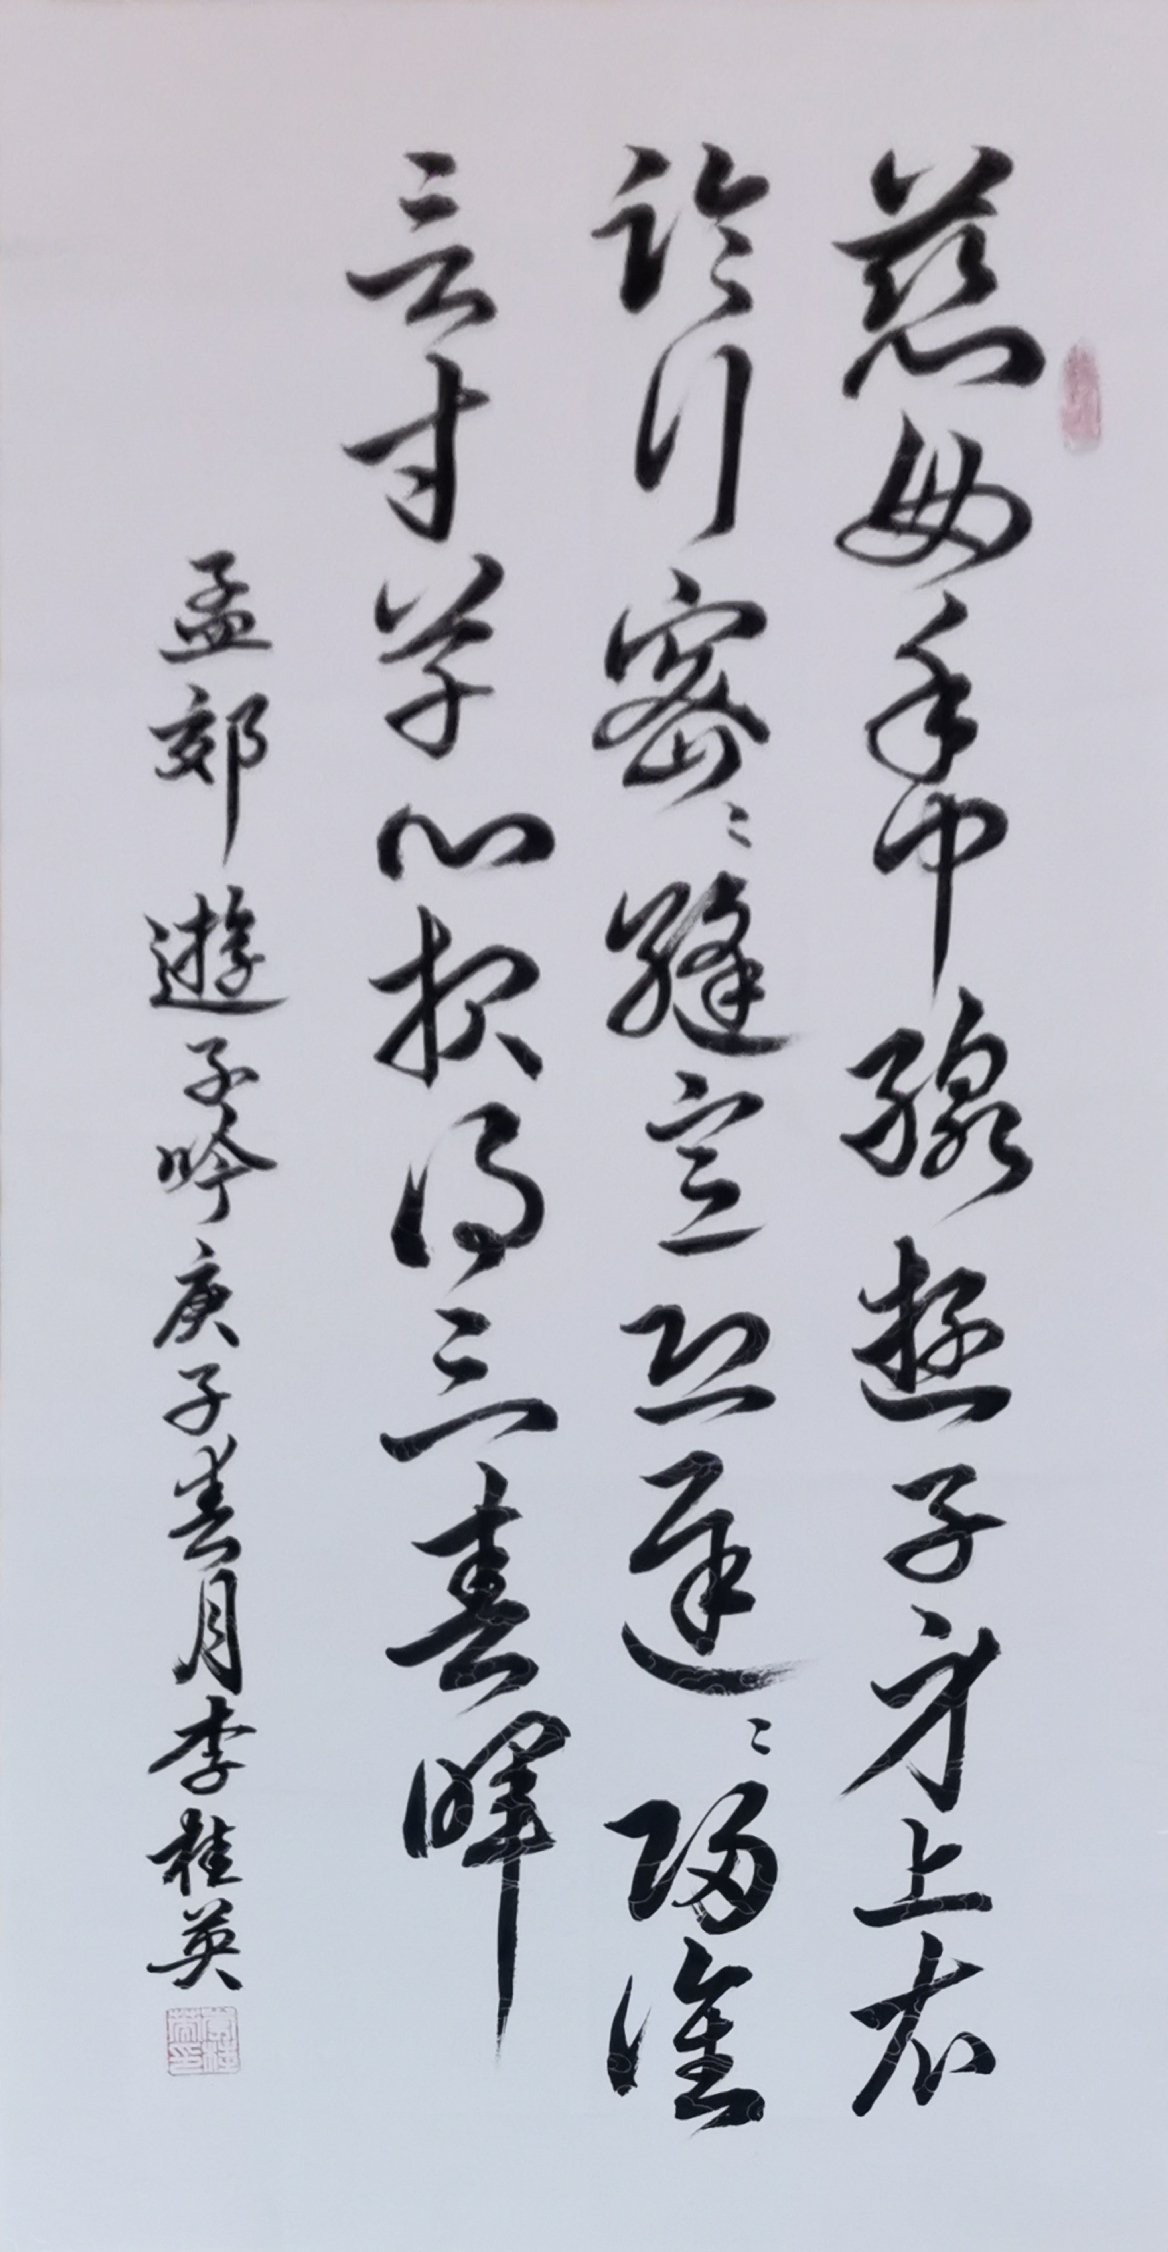 慈母手中線遊子身上衣
臨行密〻縫意恐遲〻歸誰
言寸草心報得三春暉
孟郊遊子吟庚子春月李桂英